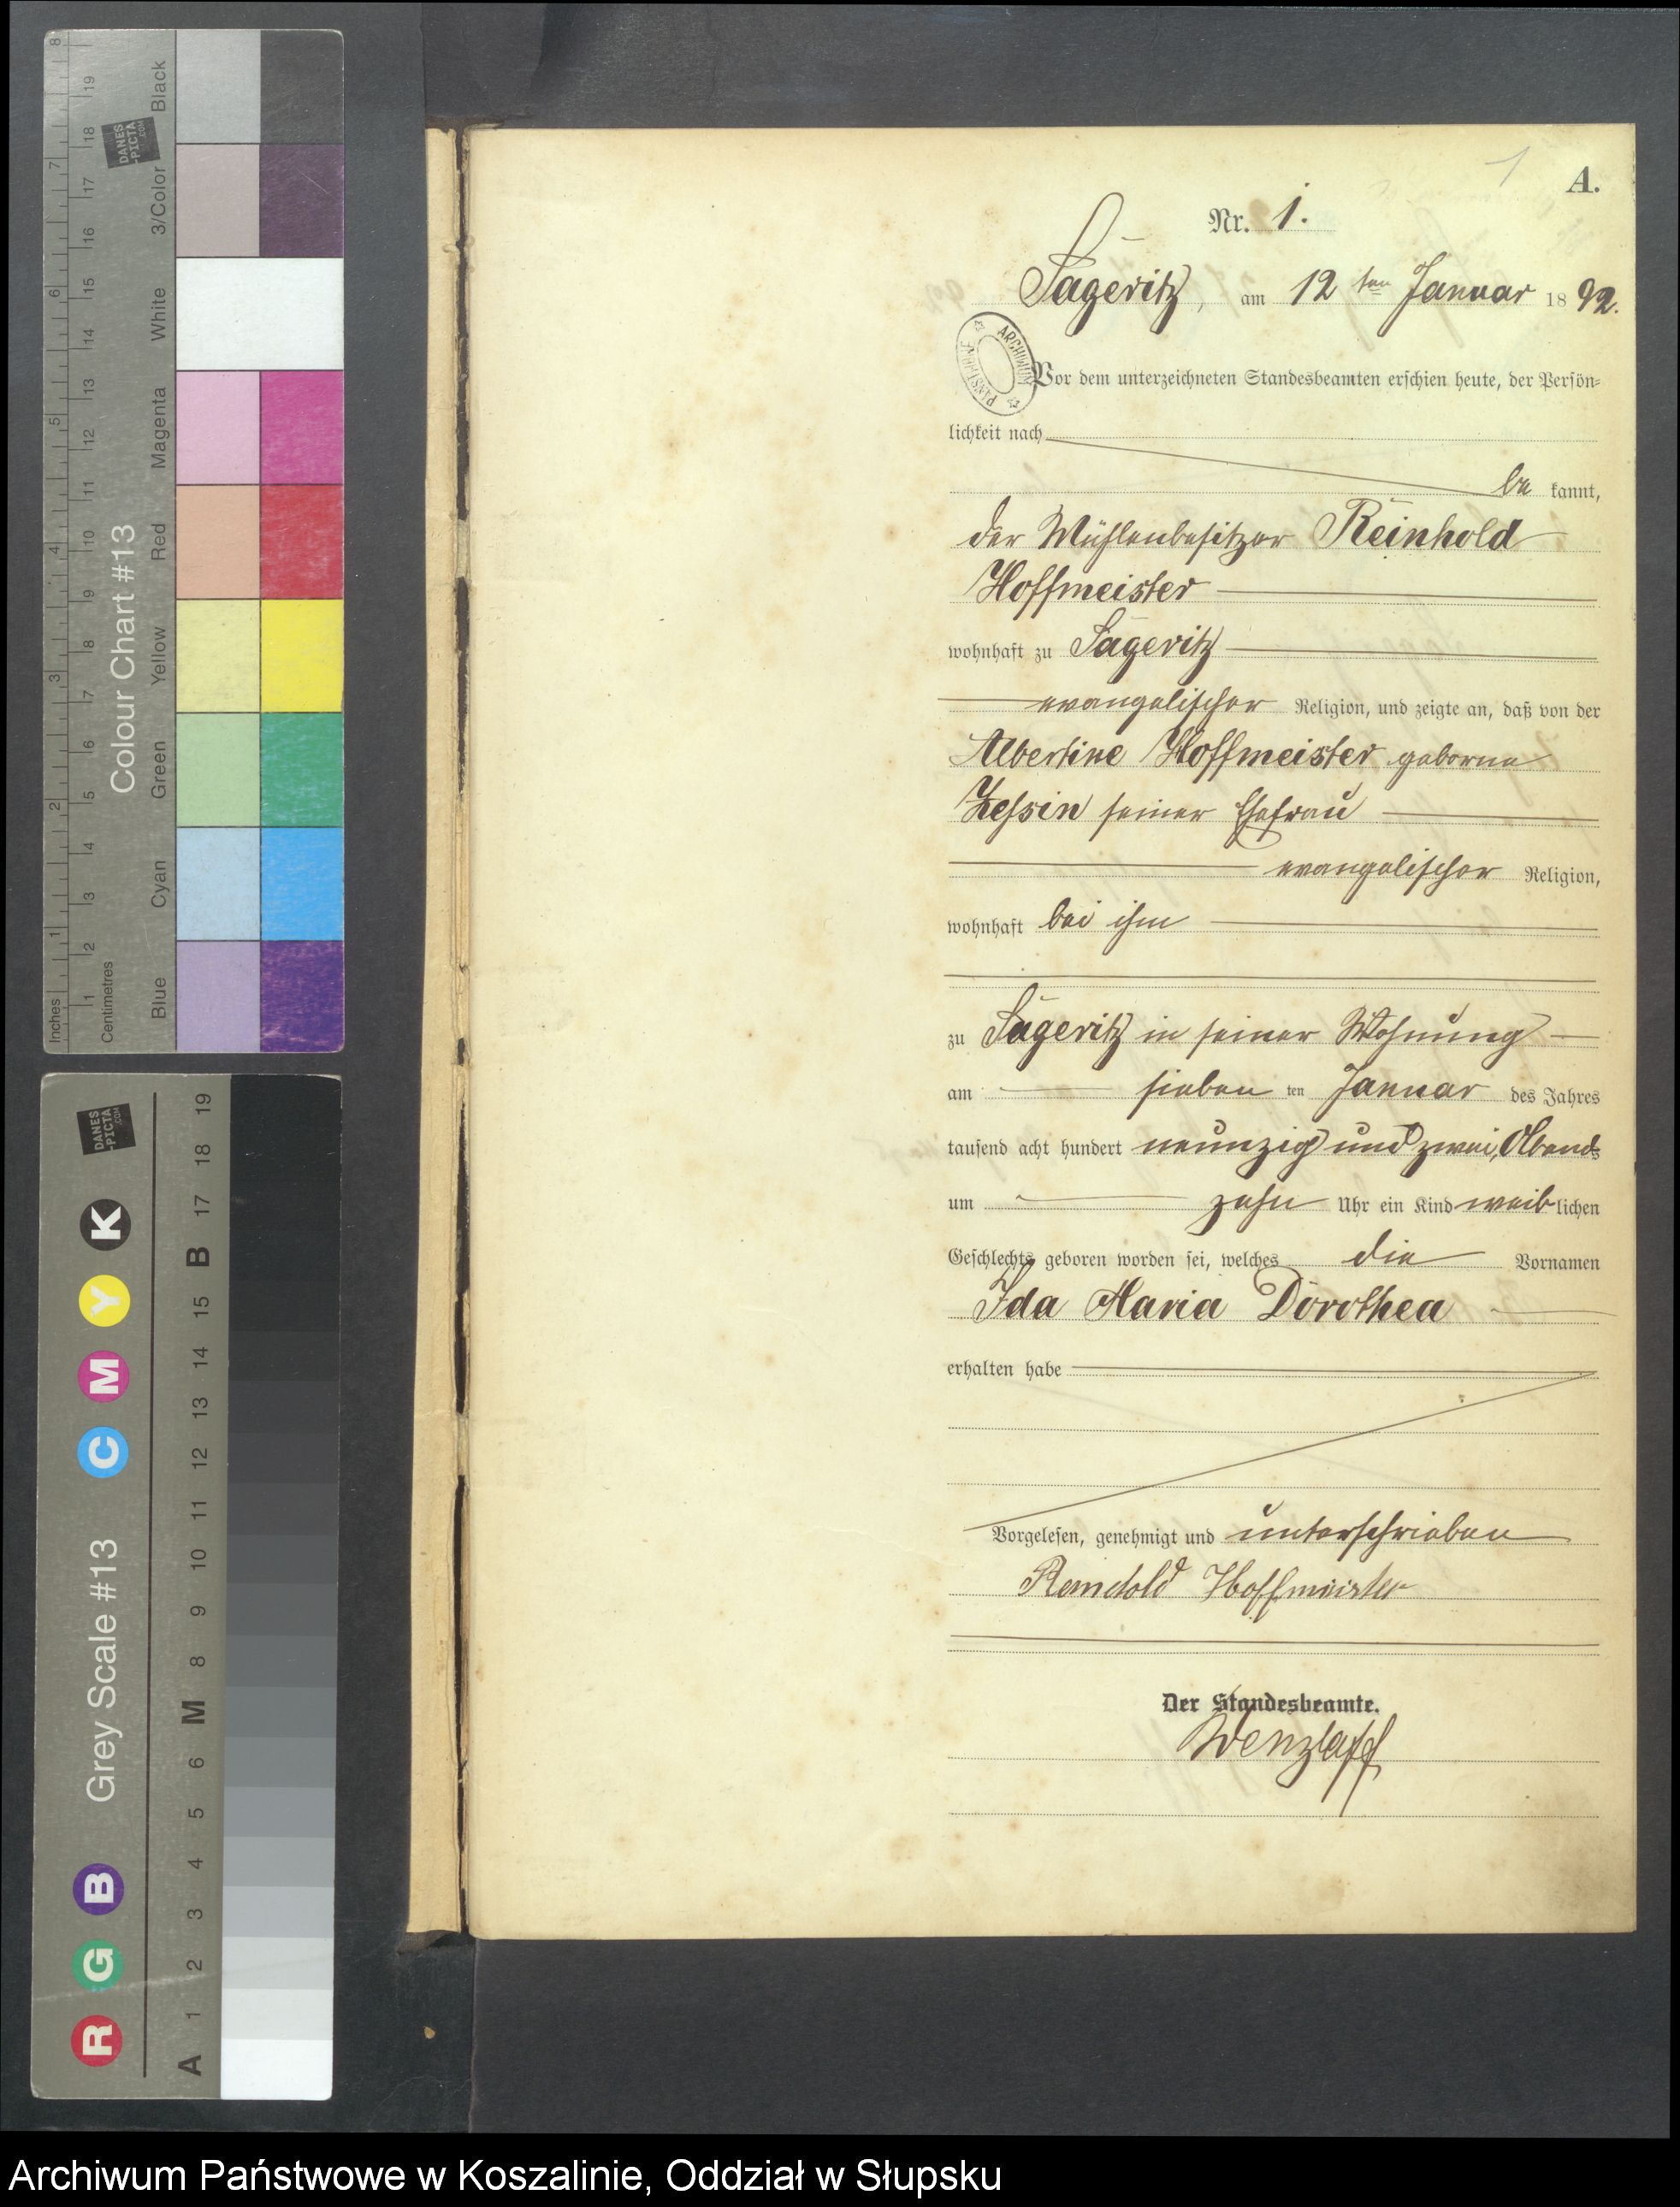 1
A.
Nr. 1.
Sageritz, am 12 ten Januar 1892.
ARCHIWUM PAŃSTWOWE
Vor dem unterzeichneten Standesbeamten erschien heute, der Persön-
lichkeit nach
be kannt,
der Mühlenbesitzer Reinhold
Hoffmeister
wohnhaft zu Sageritz
evangelischer Religion, und zeigte an, daß von der
Albertine Hoffmeister geborne
Zessin seiner Ehefrau
evangelischer Religion,
wohnhaft bei ihm
zu Sageritz in seiner Wohnung
am sieben ten Januar des Jahres
tausend acht hundert neunzig und zwei, Abends
um zehn Uhr ein Kind weiblichen
Geschlechts geboren worden sei, welches die Vornamen
Ida Maria Dorothea
erhalten habe
Vorgelesen, genehmigt und unterschrieben
Reinhold Hoffmeister
Der Standesbeamte.
Wenzlaff
Inches 1 2 3 4 5 6 7 8
Centimetres 1 2 3 4 5 6 7 8 9 10 11 12 13 14 15 16 17 18 19
Colour Chart #13
Blue Cyan Green Yellow Red Magenta White 3/Color Black
DANES
-PICTA
.COM
Grey Scale #13
R G B C M Y K
A 1 2 3 4 5 6 M 8 9 10 11 12 13 14 15 B 17 18 19
DANES
-PICTA
.COM
Archiwum Państwowe w Koszalinie, Oddział w Słupsku